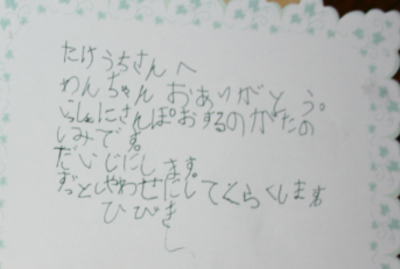 たけうちさんへ
わんちゃん おありがとう。
らしょにさんぽおするのがたの
しみです
だいじにします。
ずっとしやわせにしてくらくします
ひびき
し